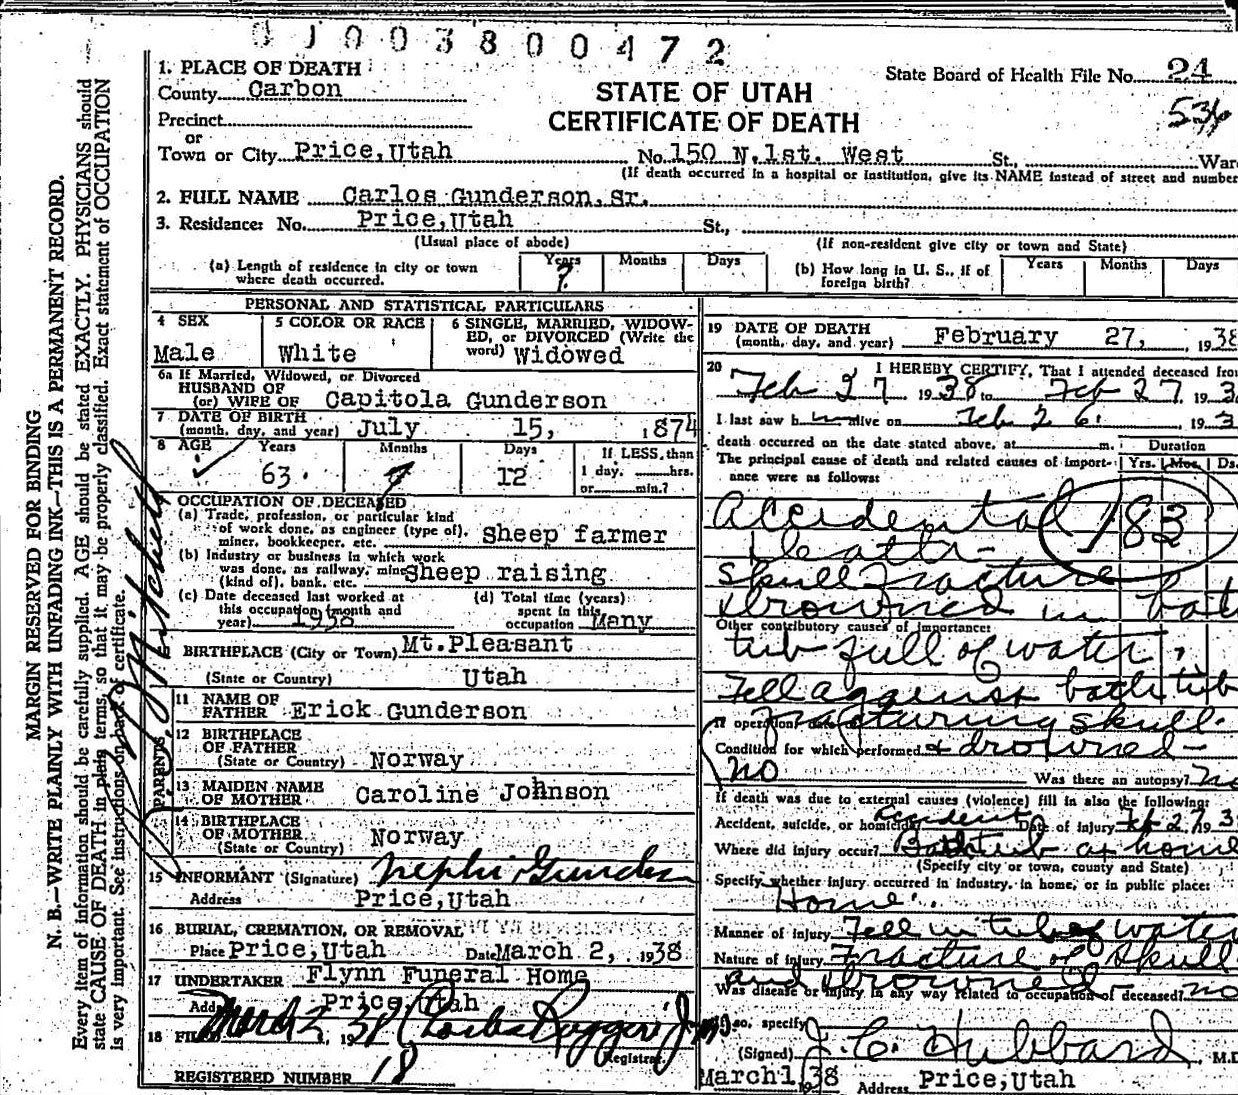 0 J 0 0 3 8 0 0 4 7 2
1. PLACE OF DEATH
County Carbon
State Board of Health File No. 24
536
STATE OF UTAH
CERTIFICATE OF DEATH
Precinct
or
Town or City Price,Utah No. 150 N.1st. West St., War
(If death occurred in a hospital or institution, give its NAME instead of street and number
2. FULL NAME Carlos Gunderson,Sr.
3. Residence: No. Price,Utah St.,
(Usual place of abode) (If non-resident give city or town and State)
(a) Length of residence in city or town where death occurred. Years ? Months Days
(b) How long in U. S., if of foreign birth? Years Months Days
PERSONAL AND STATISTICAL PARTICULARS
4 SEX Male
5 COLOR OR RACE White
6 SINGLE, MARRIED, WIDOW-
ED, or DIVORCED (Write the
word) Widowed
6a If Married, Widowed, or Divorced
HUSBAND OF
(or) WIFE OF Capitola Gunderson
7 DATE OF BIRTH
(month, day, and year) July 15, 1874
8 AGE Years 63 Months 7 Days 12
If LESS than
1 day, hrs.
or min.?
OCCUPATION OF DECEASED
(a) Trade, profession, or particular kind
of work done, as engineer (type of),
miner, bookkeeper, etc. Sheep farmer
(b) Industry or business in which work
was done, as railway, mine
(kind of), bank, etc. Sheep raising
(c) Date deceased last worked at
this occupation (month and
year) 1938
(d) Total time (years)
spent in this
occupation Many
BIRTHPLACE (City or Town) Mt.Pleasant
(State or Country) Utah
11 NAME OF
FATHER Erick Gunderson
12 BIRTHPLACE
OF FATHER
(State or Country) Norway
PARENTS
13 MAIDEN NAME
OF MOTHER Caroline Johnson
14 BIRTHPLACE
OF MOTHER
(State or Country) Norway
15 INFORMANT (Signature) Nephi Gunderson
Address Price,Utah
16 BURIAL, CREMATION, OR REMOVAL
Place Price,Utah Date March 2, 1938
17 UNDERTAKER Flynn Funeral Home
Add Price,Utah
18 FILED March 2 38 Charles Ruggeri Jr
Registrar
REGISTERED NUMBER 18
19 DATE OF DEATH
(month, day, and year) February 27, , 1938
20 I HEREBY CERTIFY, That I attended deceased from
Feb 27 1938 to Feb 27, 193
I last saw him alive on Feb 26, 193
death occurred on the date stated above, at m.
The principal cause of death and related causes of import-
ance were as follows:
Duration
Yrs. Mos. Ds.
Accidental 183
Death -
Skull Fracture
& drowned in bath
Other contributory causes of importance:
tub full of water.
Fell aganst bath tub
If operation, date of fracturing skull.
Condition for which performed & drowned -
no Was there an autopsy? no
If death was due to external causes (violence) fill in also the following:
Accident, suicide, or homicide Accident Date of injury Feb 27, 193
Where did injury occur? Bathtub at home
(Specify city or town, county and State)
Specify whether injury occurred in industry, in home, or in public place:
Home
Manner of injury Fell in tub of water
Nature of injury Fracture of Skull
and drowned
Was disease or injury in any way related to occupation of deceased? no
so, specify
(Signed) J. C. Hubbard M.D
March 1, 1938 Address Price,Utah
MARGIN RESERVED FOR BINDING
N. B.—WRITE PLAINLY WITH UNFADING INK—THIS IS A PERMANENT RECORD.
Every item of information should be carefully supplied. AGE should be stated EXACTLY. PHYSICIANS should
state CAUSE OF DEATH in plain terms, so that it may be properly classified. Exact statement of OCCUPATION
is very important. See instructions on back of certificate.